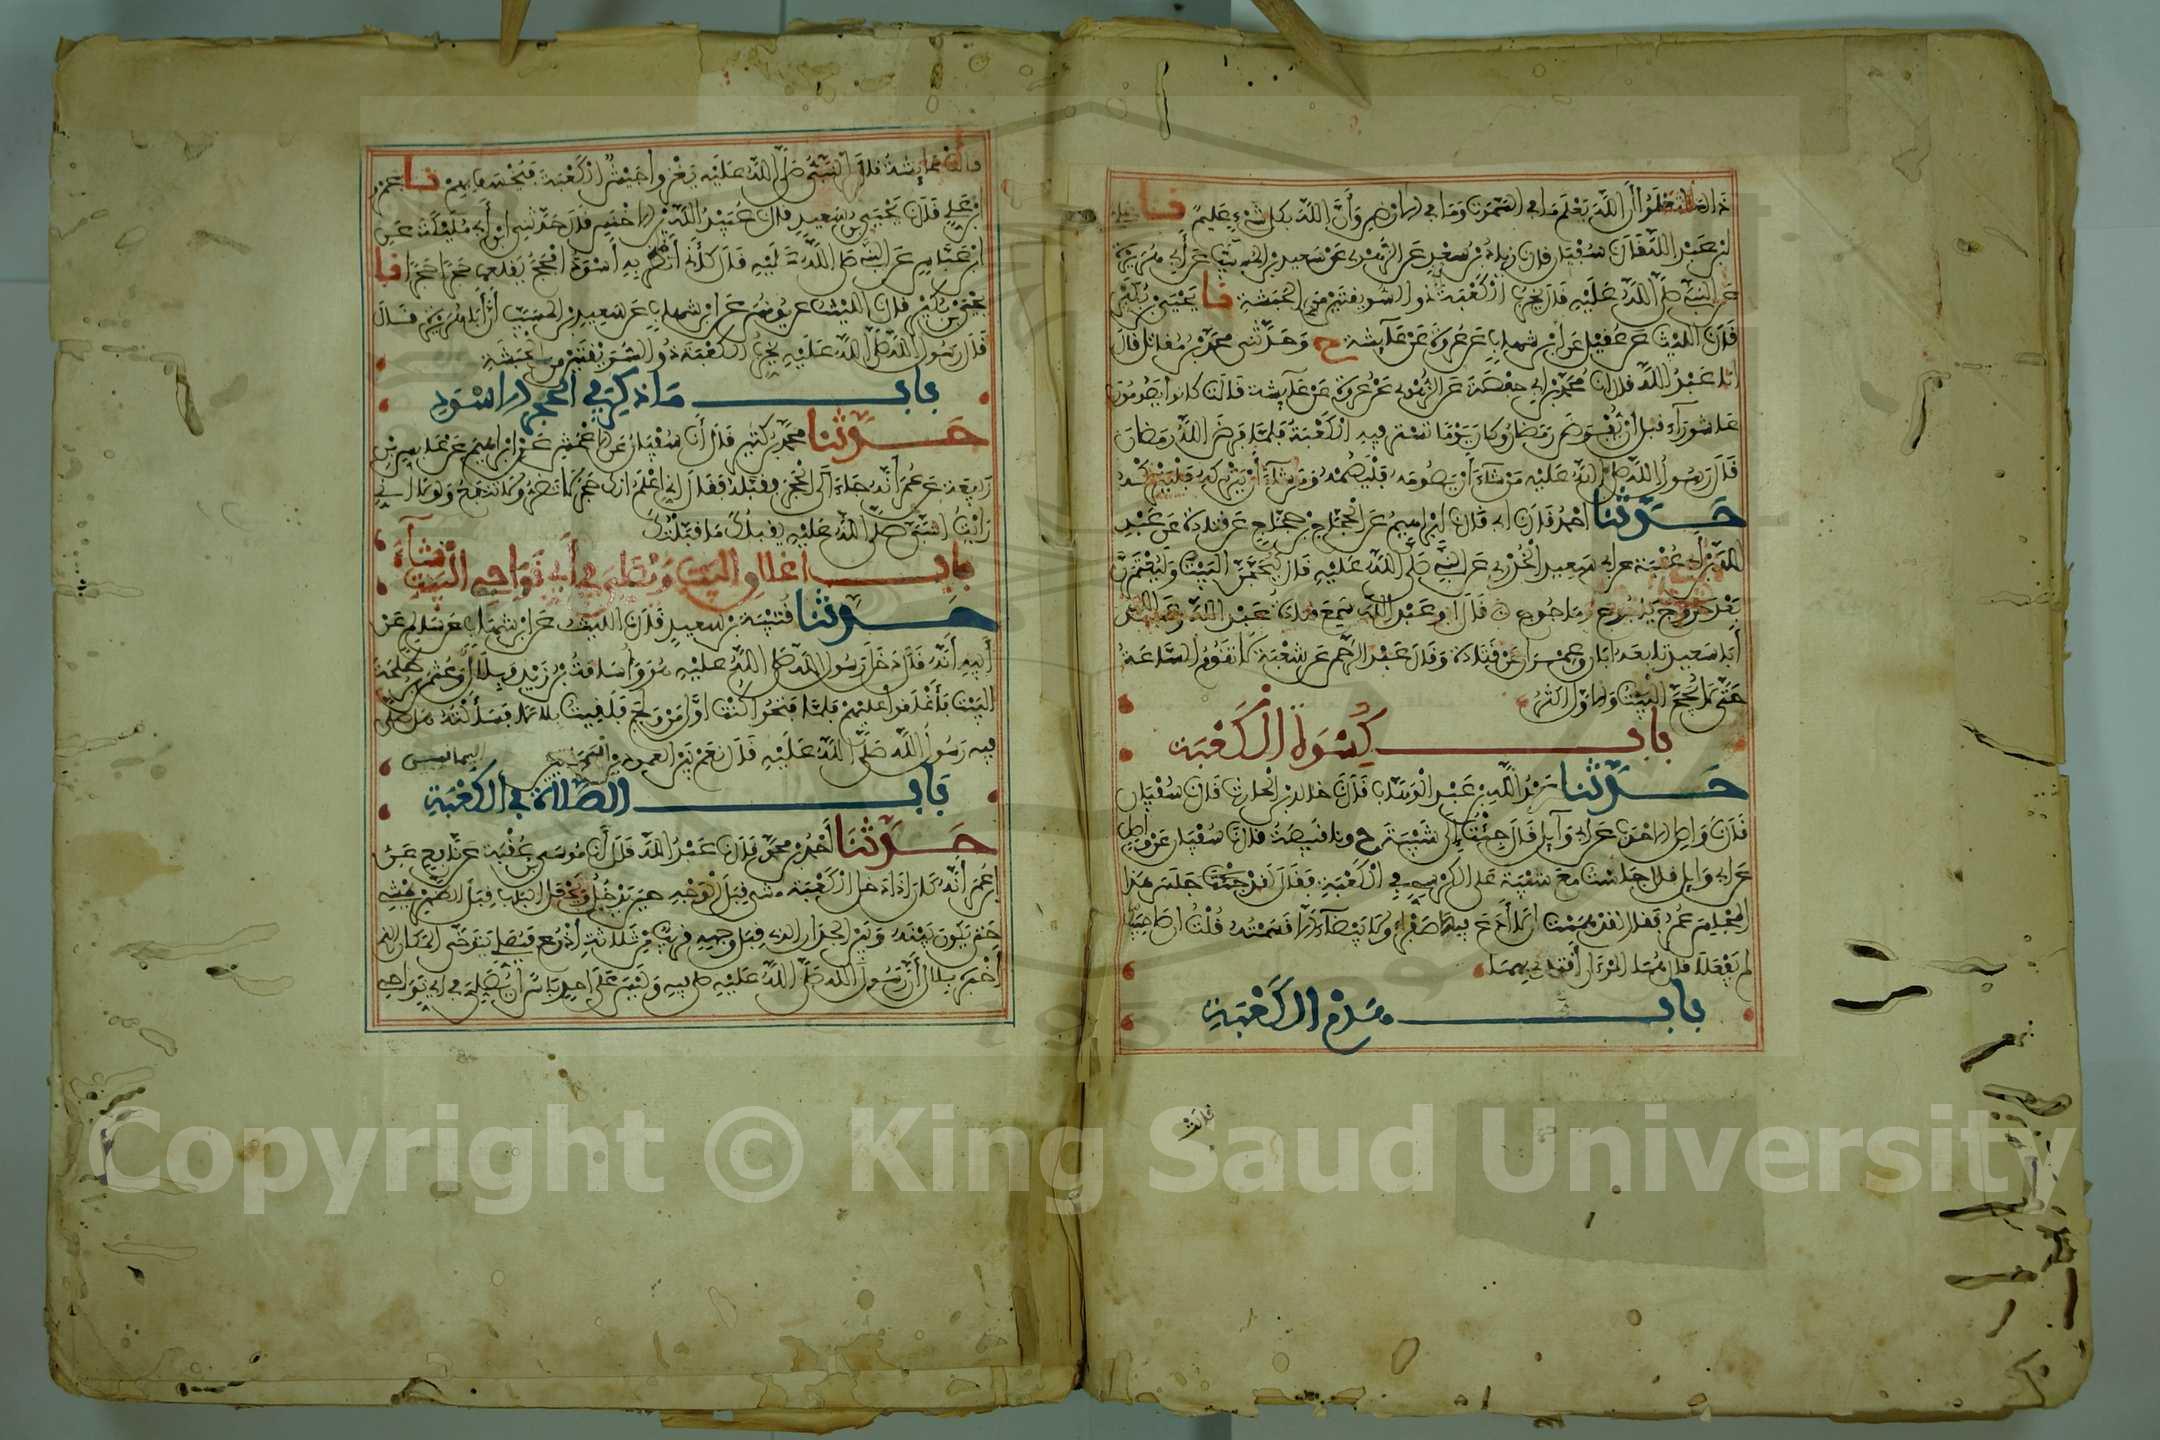 ذلك لتعلموا أن الله يعلم ما في السموت وما في الارض وأن الله بكل شيء عليم نا علي
ابن عبد الله قال نا سفيان قال نا زياد بن سعد عن الزهري عن سعيد بن المسيب عن أبي هريرة
عن النبي صلى الله عليه قال يخرب الكعبة ذو السويقتين من الحبشة نا يحيى بن بكير
قال نا الليث عن عقيل عن ابن شهاب عن عروة عن عائشة ح وحدثني محمد بن مقاتل قال
انا عبد الله قال انا محمد بن ابي حفصة عن الزهري عن عروة عن عائشة قالت كانوا يصومون
عاشوراء قبل أن يفرض رمضان وكان يوما تستر فيه الكعبة فلما فرض الله رمضان
قال رسول الله صلى الله عليه من شاء أن يصومه فليصمه ومن شاء أن يتركه فليتركه
حدثنا احمد قال نا ابي قال نا ابراهيم عن الحجاج بن حجاج عن قتادة عن عبد
الله بن أبي عتبة عن ابي سعيد الخدري عن النبي صلى الله عليه قال ليحجن البيت وليعتمرن
بعد خروج ياجوج وماجوج قال ابو عبد الله سمع قتادة عبد الله وعبد الله
أبا سعيد تابعه ابان وعمران عن قتادة وقال عبد الرحمن عن شعبة لا تقوم الساعة
حتى لا يحج البيت والاول اكثر
باب كسوة الكعبة
حدثنا عبد الله بن عبد الوهاب قال نا خالد بن الحارث قال نا سفيان
قال نا واصل الاحدب عن ابي وآيل قال جئت إلى شيبة ح ونا قبيصة قال نا سفيان عن واصل
عن ابي وايل قال جلست مع شيبة على الكرسي في الكعبة فقال لقد جلس هذا
المجلس عمر فقال لقد هممت ان لا أدع فيها صفراء ولا بيضاء الا قسمته قلت ان صاحبيك
لم يفعلا قال هما المرءان أقتدي بهما
باب هدم الكعبة
قالت
قالت عايشة قال النبي صلى الله عليه يغزو جيش الكعبة فيخسف بهم نا عمرو
ابن علي قال نا يحيى بن سعيد قال نا عبيد الله بن الاخنس قال حدثني ابن أبي مليكة عن
ابن عباس عن النبي صلى الله عليه قال كأني به أسود افحج يقلعها حجرا حجرا نا
يحيى بن بكير قال نا الليث عن يونس عن ابن شهاب عن سعيد بن المسيب أن أبا هريرة قال
قال رسول الله صلى الله عليه يخرب الكعبة ذو السويقتين من الحبشة
باب ما ذكر في الحجر الاسود
حدثنا محمد بن كثير قال أنا سفيان عن الاعمش عن ابراهيم عن عابس بن
ربيعة عن عمر أنه جاء الى الحجر فقبله فقال إني اعلم انك حجر لا تضر ولا تنفع ولولا اني
رايت النبي صلى الله عليه يقبلك ما قبلتك
باب اغلاق البيت ويصلي في أي نواحي البيت شآء
حدثنا قتيبة بن سعيد قال نا الليث عن ابن شهاب عن سالم عن
أبيه أنه قال دخل رسول الله صلى الله عليه هو وأسامة بن زيد وبلال وعثمن بن طلحة
البيت فأغلقوا عليهم فلما فتحوا كنت اول من ولج فلقيت بلالا فسألته هل صلى
فيه رسول الله صلى الله عليه قال نعم بين العمودين اليمانيين
باب الصلاة في الكعبة
حدثنا أحمد بن محمد قال انا عبد الله قال أنا موسى بن عقبة عن نافع عن
ابن عمر أنه كان اذا دخل الكعبة مشى قبل الوجه حين يدخل ويجعل الباب قبل الظهر يمشي
حتى يكون بينه وبين الجدار الذي قبل وجهه قريب من ثلاثة اذرع فيصلي يتوخى المكان الذي
أخبره بلال أن رسول الله صلى الله عليه صلى فيه وليس على احد باس ان يصلي في اي نواحي
Copyright © King Saud University